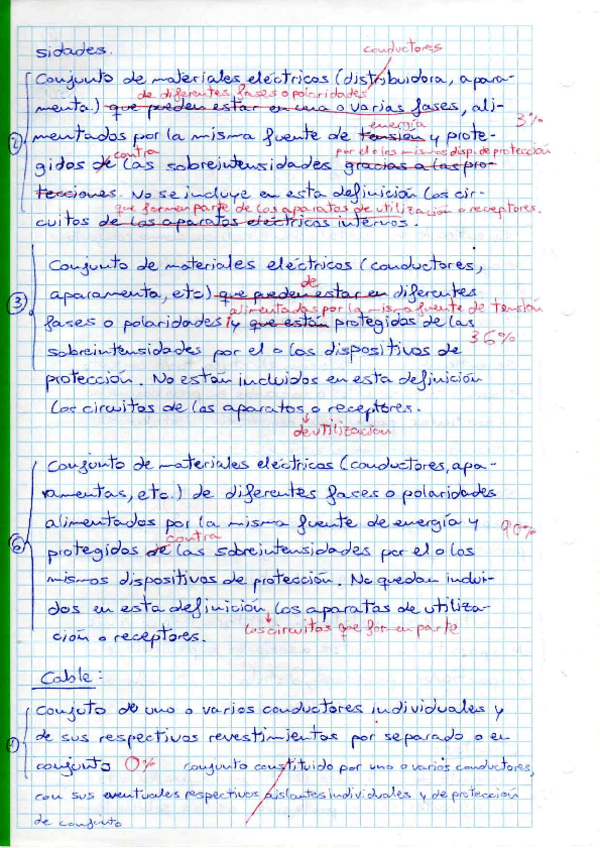 sidades.
conductores
Conjunto de materiales eléctricos (distribuidora, apara-
de diferentes fases o polaridades
menta) que pueden estar en una o varias fases, ali-
energía
3%
mentados por la misma fuente de tensión y prote-
contra
por el o los mismos disp. de protección
2
gidos de las sobreintensidades gracias a las pro-
tecciones. No se incluye en esta definición los cir-
que formen parte de los aparatos de utilización o receptores.
cuitos de los aparatos eléctricos internos.
Conjunto de materiales eléctricos (conductores,
de
3
aparamenta, etc) que pueden estar en diferentes
alimentadas por la misma fuente de tensión
fases o polaridades y que están protegidos de las
36%
sobreintensidades por el o los dispositivos de
protección. No están incluidos en esta definición
los circuitos de los aparatos o receptores.
de utilización
Conjunto de materiales eléctricos (conductores, apa-
ramentas, etc.) de diferentes fases o polaridades
alimentados por la misma fuente de energía y
90%
contra
protegidos de las sobreintensidades por el o los
mismos dispositivos de protección. No quedan inclui-
dos en esta definición los aparatos de utiliza-
los circuitos que formen parte
ción o receptores.
Cable:
Conjuto de uno o varios conductores individuales y
de sus respectivos revestimientos por separado o en
1
conjunto 0% conjunto constituido por uno o varios conductores,
con sus eventuales respectivos aislantes individuales y de protección
de conjunto